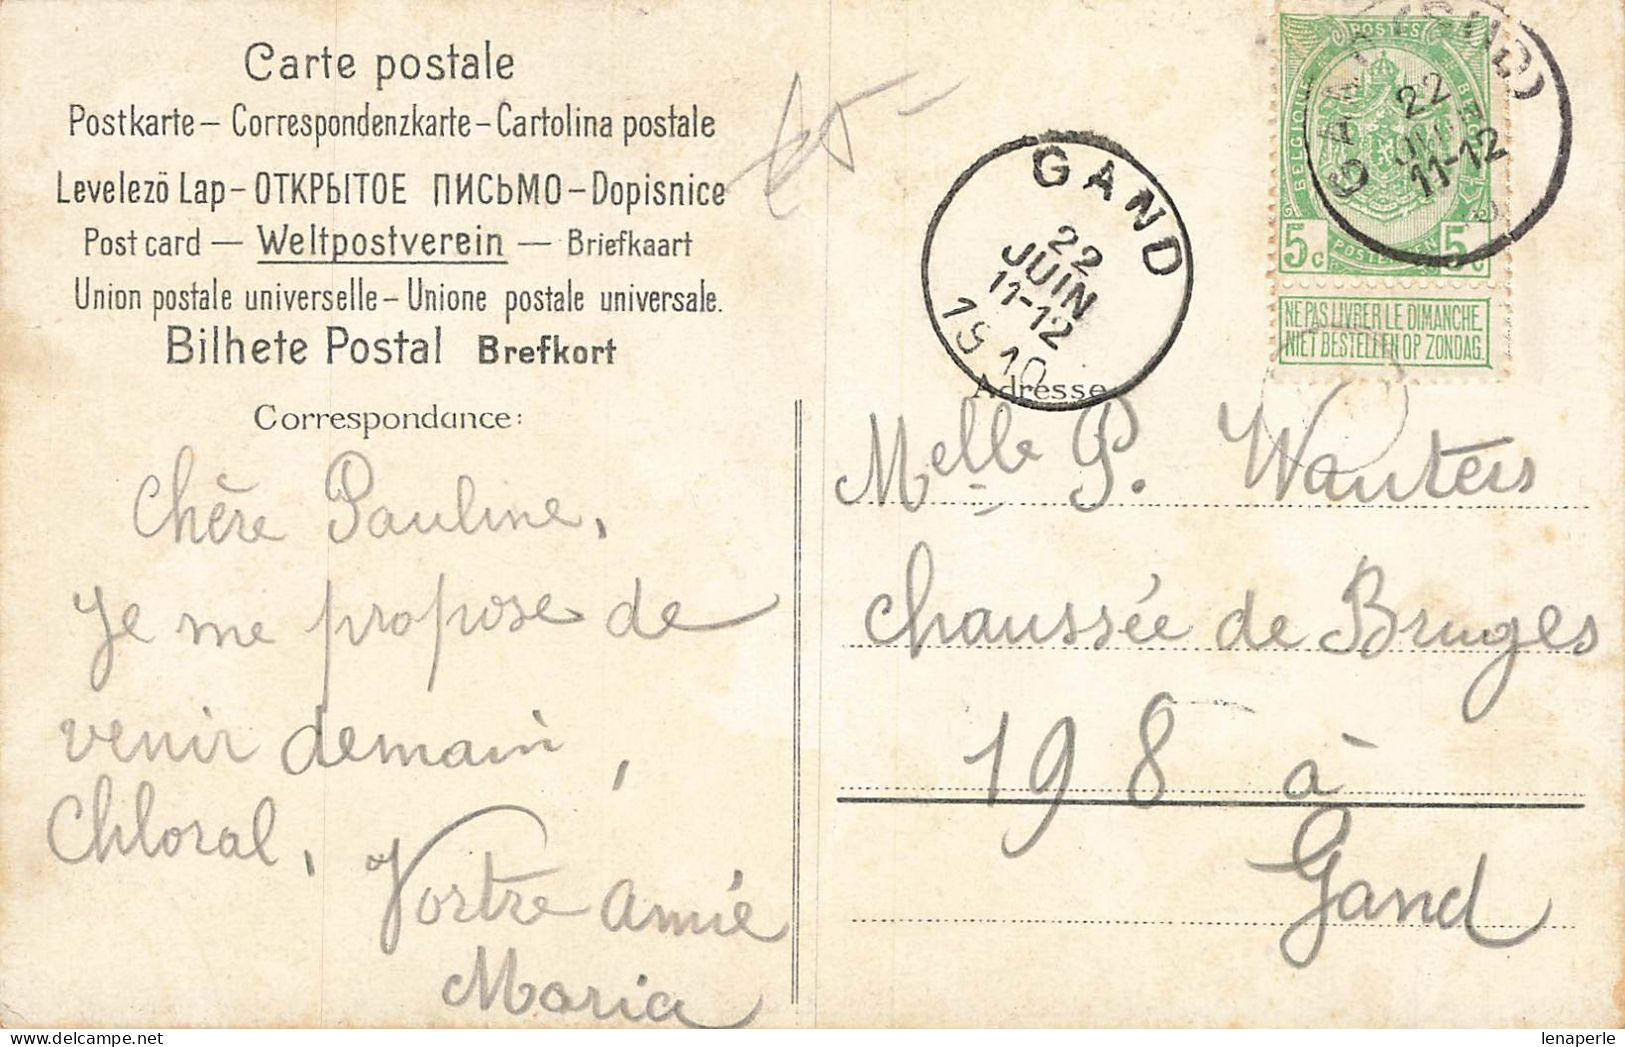 Carte postale
Postkarte – Correspondenzkarte – Cartolina postale
Levelező Lap – ОТКРЫТОЕ ПИСЬМО – Dopisnice
Post card — Weltpostverein — Briefkaart
Union postale universelle – Unione postale universale.
Bilhete Postal Brefkort
Correspondance:
Chère Pauline,
Je me propose de
venir demain,
Chloral,
Vortre amie
Maria
GAND
22
JUIN
11-12
1910
POSTES
BELGIQUE
BELGIË
5c POSTERIJEN 5c
NE PAS LIVRER LE DIMANCHE
NIET BESTELLEN OP ZONDAG.
GAND (SUD)
22
JUIN
11-12
Adresse
Melle P. Wauters
chaussée de Bruges
198 à
Gand
lenaperle